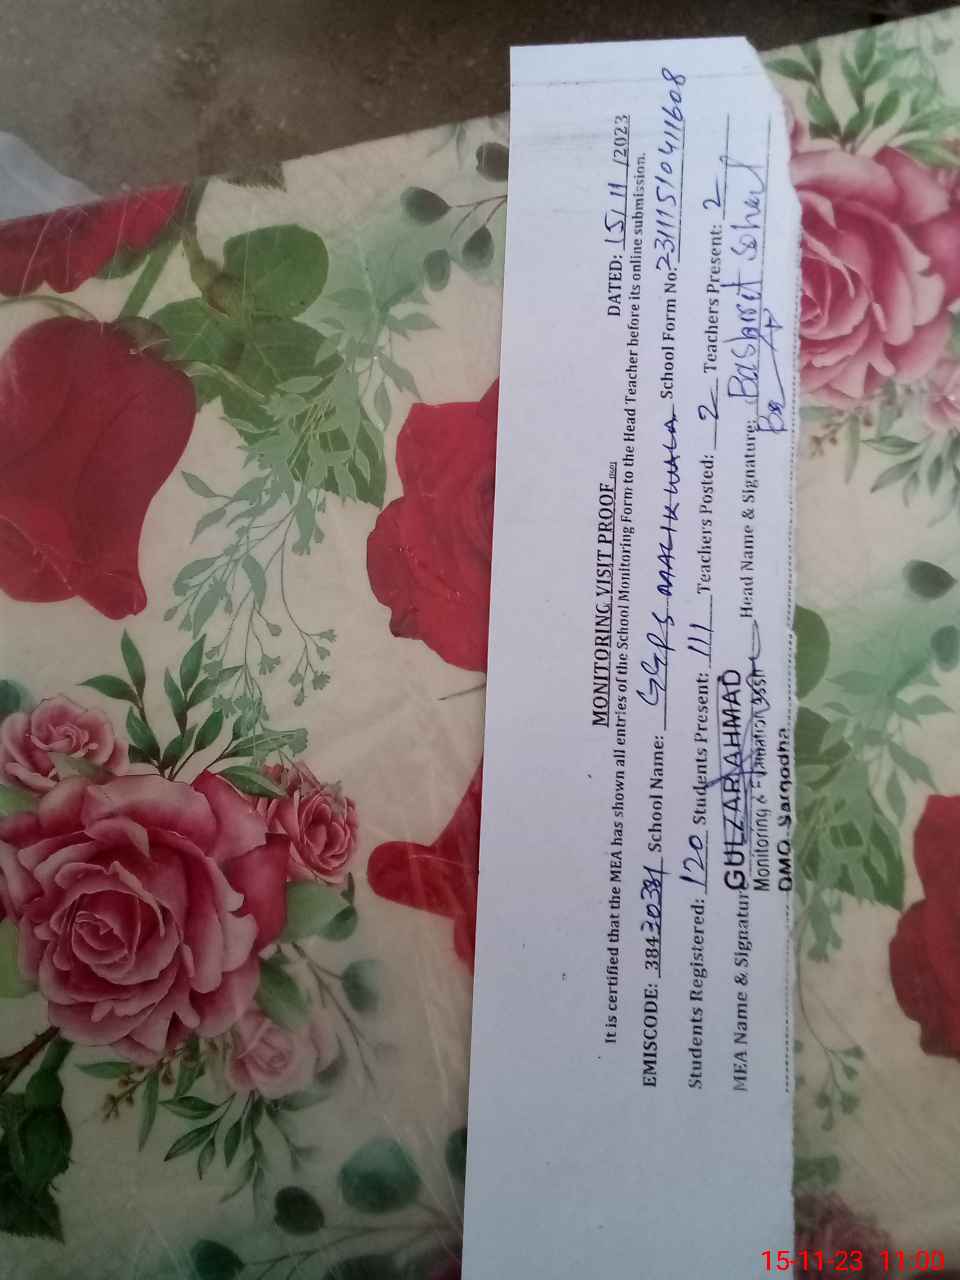 MONITORING VISIT PROOF
DATED: 15/11/2023
It is certified that the MEA has shown all entries of the School Monitoring Form to the Head Teacher before its online submission.
EMISCODE: 38430381 School Name: GGPS MALIKWALA School Form No. 23111510411608
Students Registered: 120 Students Present: 111 Teachers Posted: 2 Teachers Present: 2
MEA Name & Signature GULZAR AHMAD Head Name & Signature: Basharat
Monitoring & Evaluation Asstt
DMO Sargodha
15-11-23 11:00